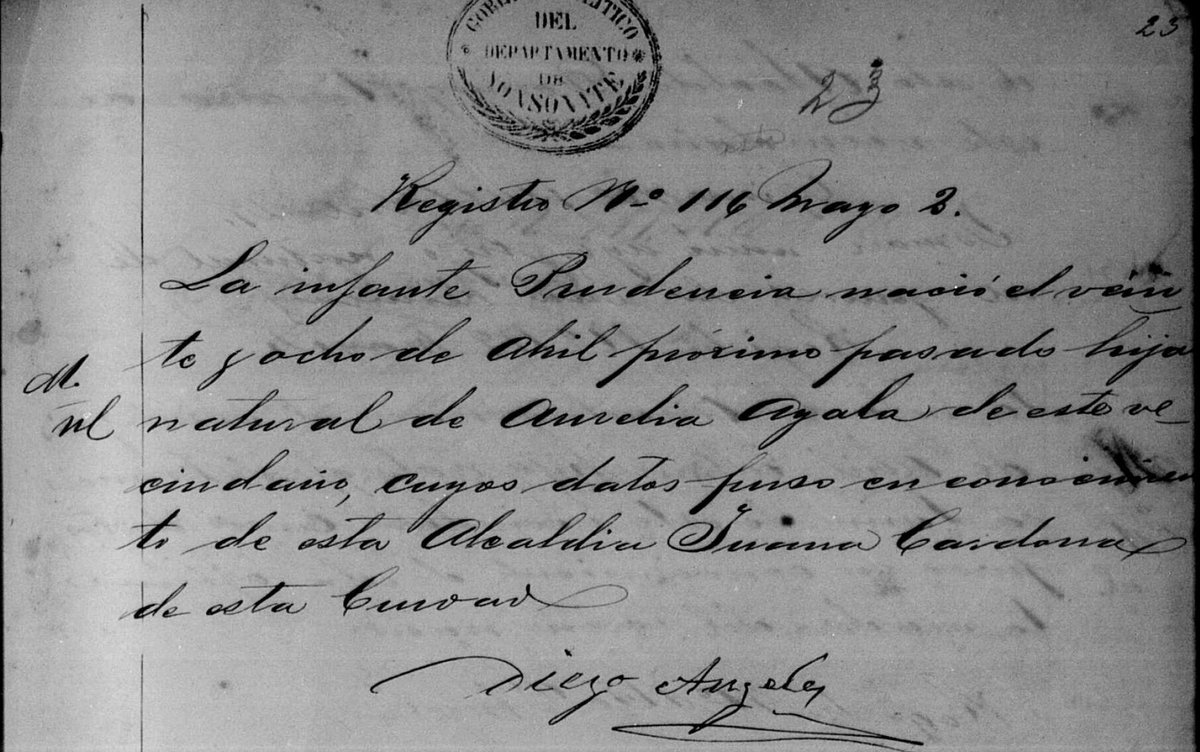 25
GOBIERNO POLITICO
DEL
DEPARTAMENTO
DE
SONSONATE
23
Registro No. 116 Mayo 2.
La infante Prudencia nació el vein
te y ocho de Abil próximo pasado hija
M.
nl natural de Aurelia Ayala de este ve-
cindario, cuyos datos puso en conocimien
to de esta Alcaldia Juana Cardona
de esta Ciudad
Diego Angeles